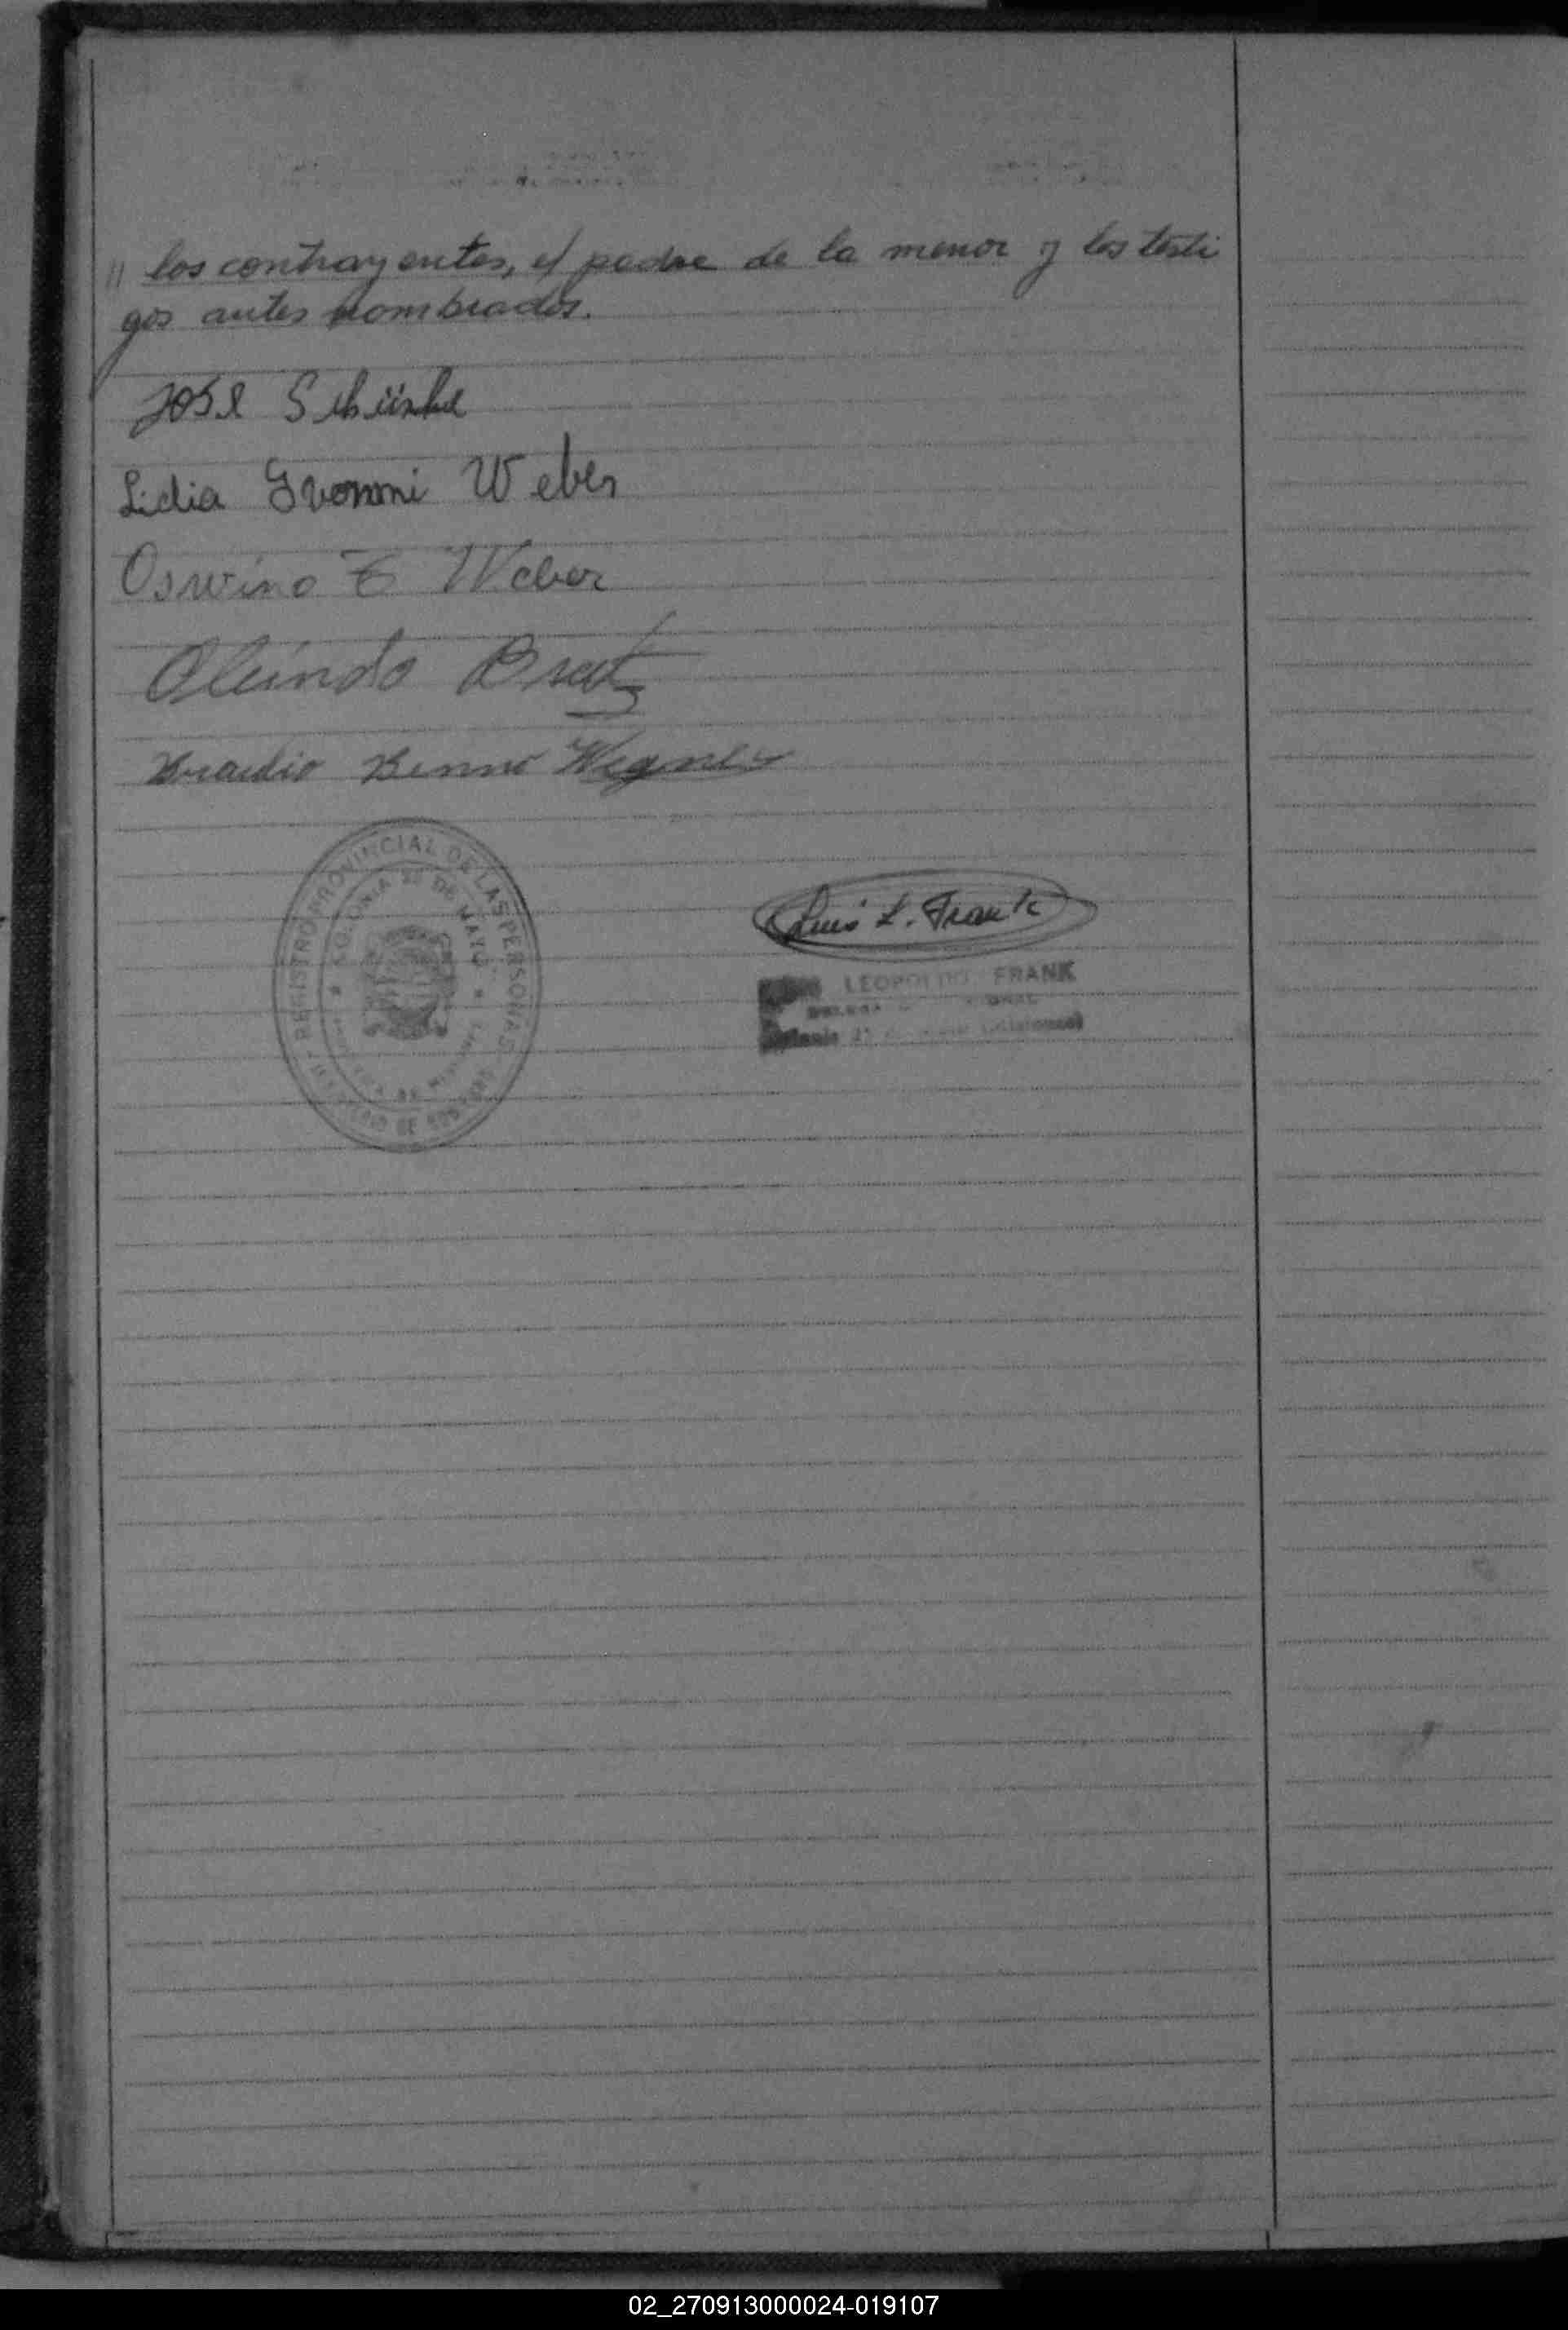 // los contrayentes, el padre de la menor y los testi
gos antes nombrados.
José Schünke
Lidia Ivonni Weber
Oswino E Weber
Olindo Bratz
Braulio Benno Wegner
REGISTRO PROVINCIAL DE LAS PERSONAS
COLONIA 25 DE MAYO
Luis L. Frank
LEOPOLDO FRANK
02_270913000024-019107